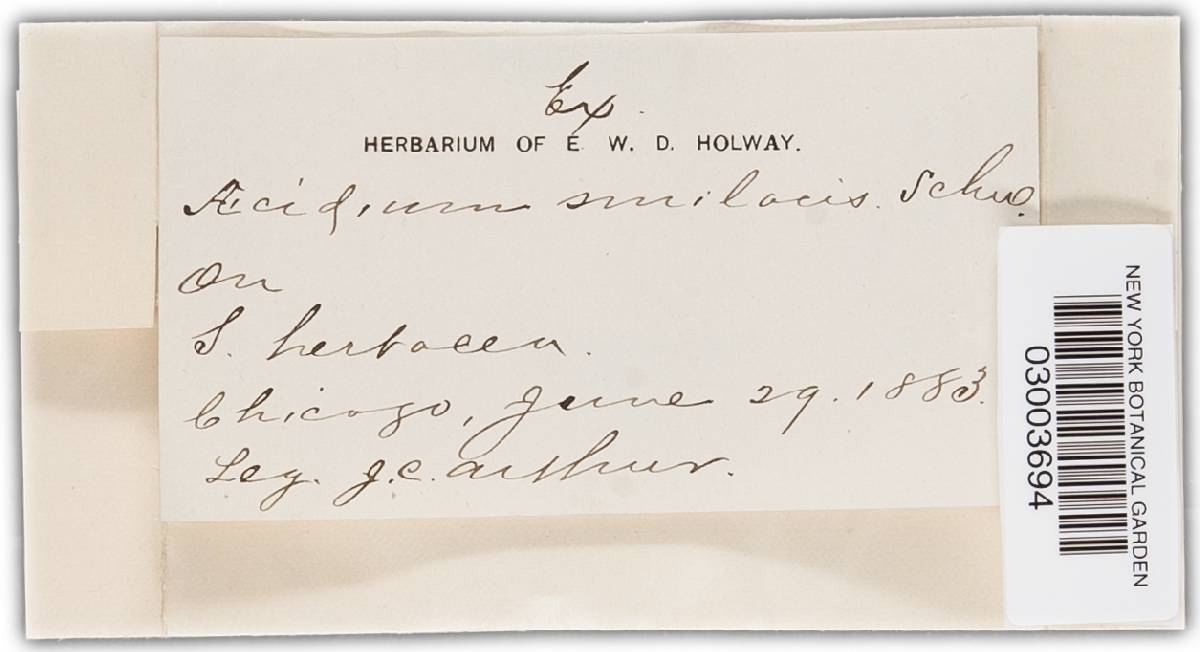 Ex.
HERBARIUM OF E. W. D. HOLWAY.
Æcidium smilacis. Schw.
On
S. herbacea.
Chicago, June 29. 1883.
Leg. J. C. Arthur.
NEW YORK BOTANICAL GARDEN
03003694